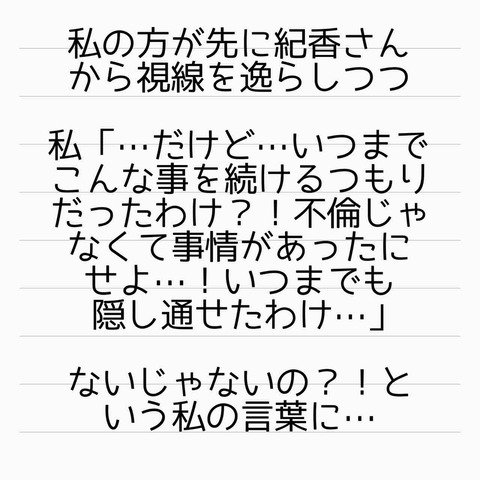 私の方が先に紀香さん
から視線を逸らしつつ
私「…だけど…いつまで
こんな事を続けるつもり
だったわけ？！不倫じゃ
なくて事情があったに
せよ…！いつまでも
隠し通せたわけ…」
ないじゃないの？！と
いう私の言葉に…